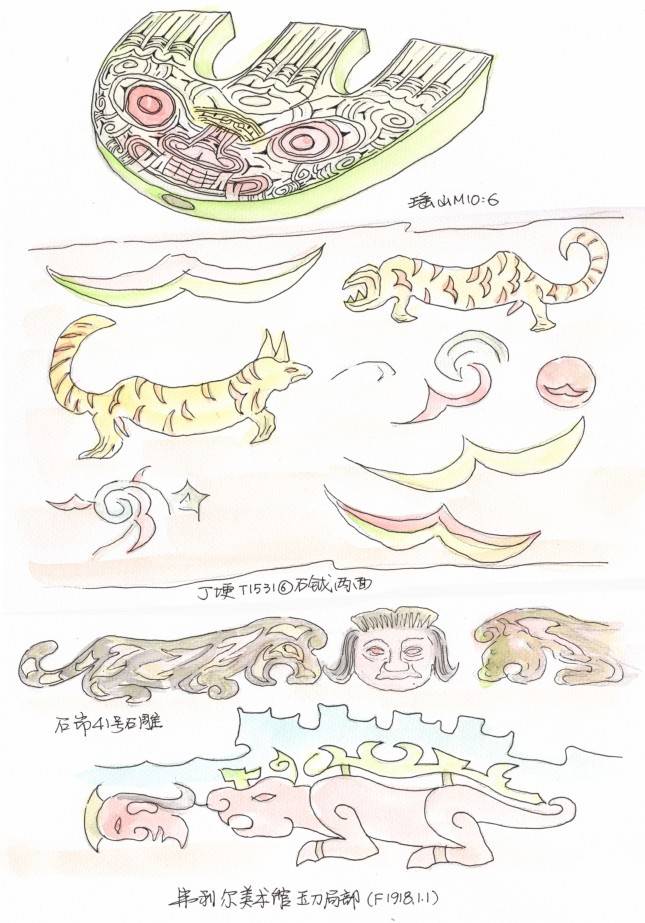 瑶山M10:6
丁埂T1531⑥石钺两面
石峁41号石雕
弗利尔美术馆玉刀局部(F1918.1.1)